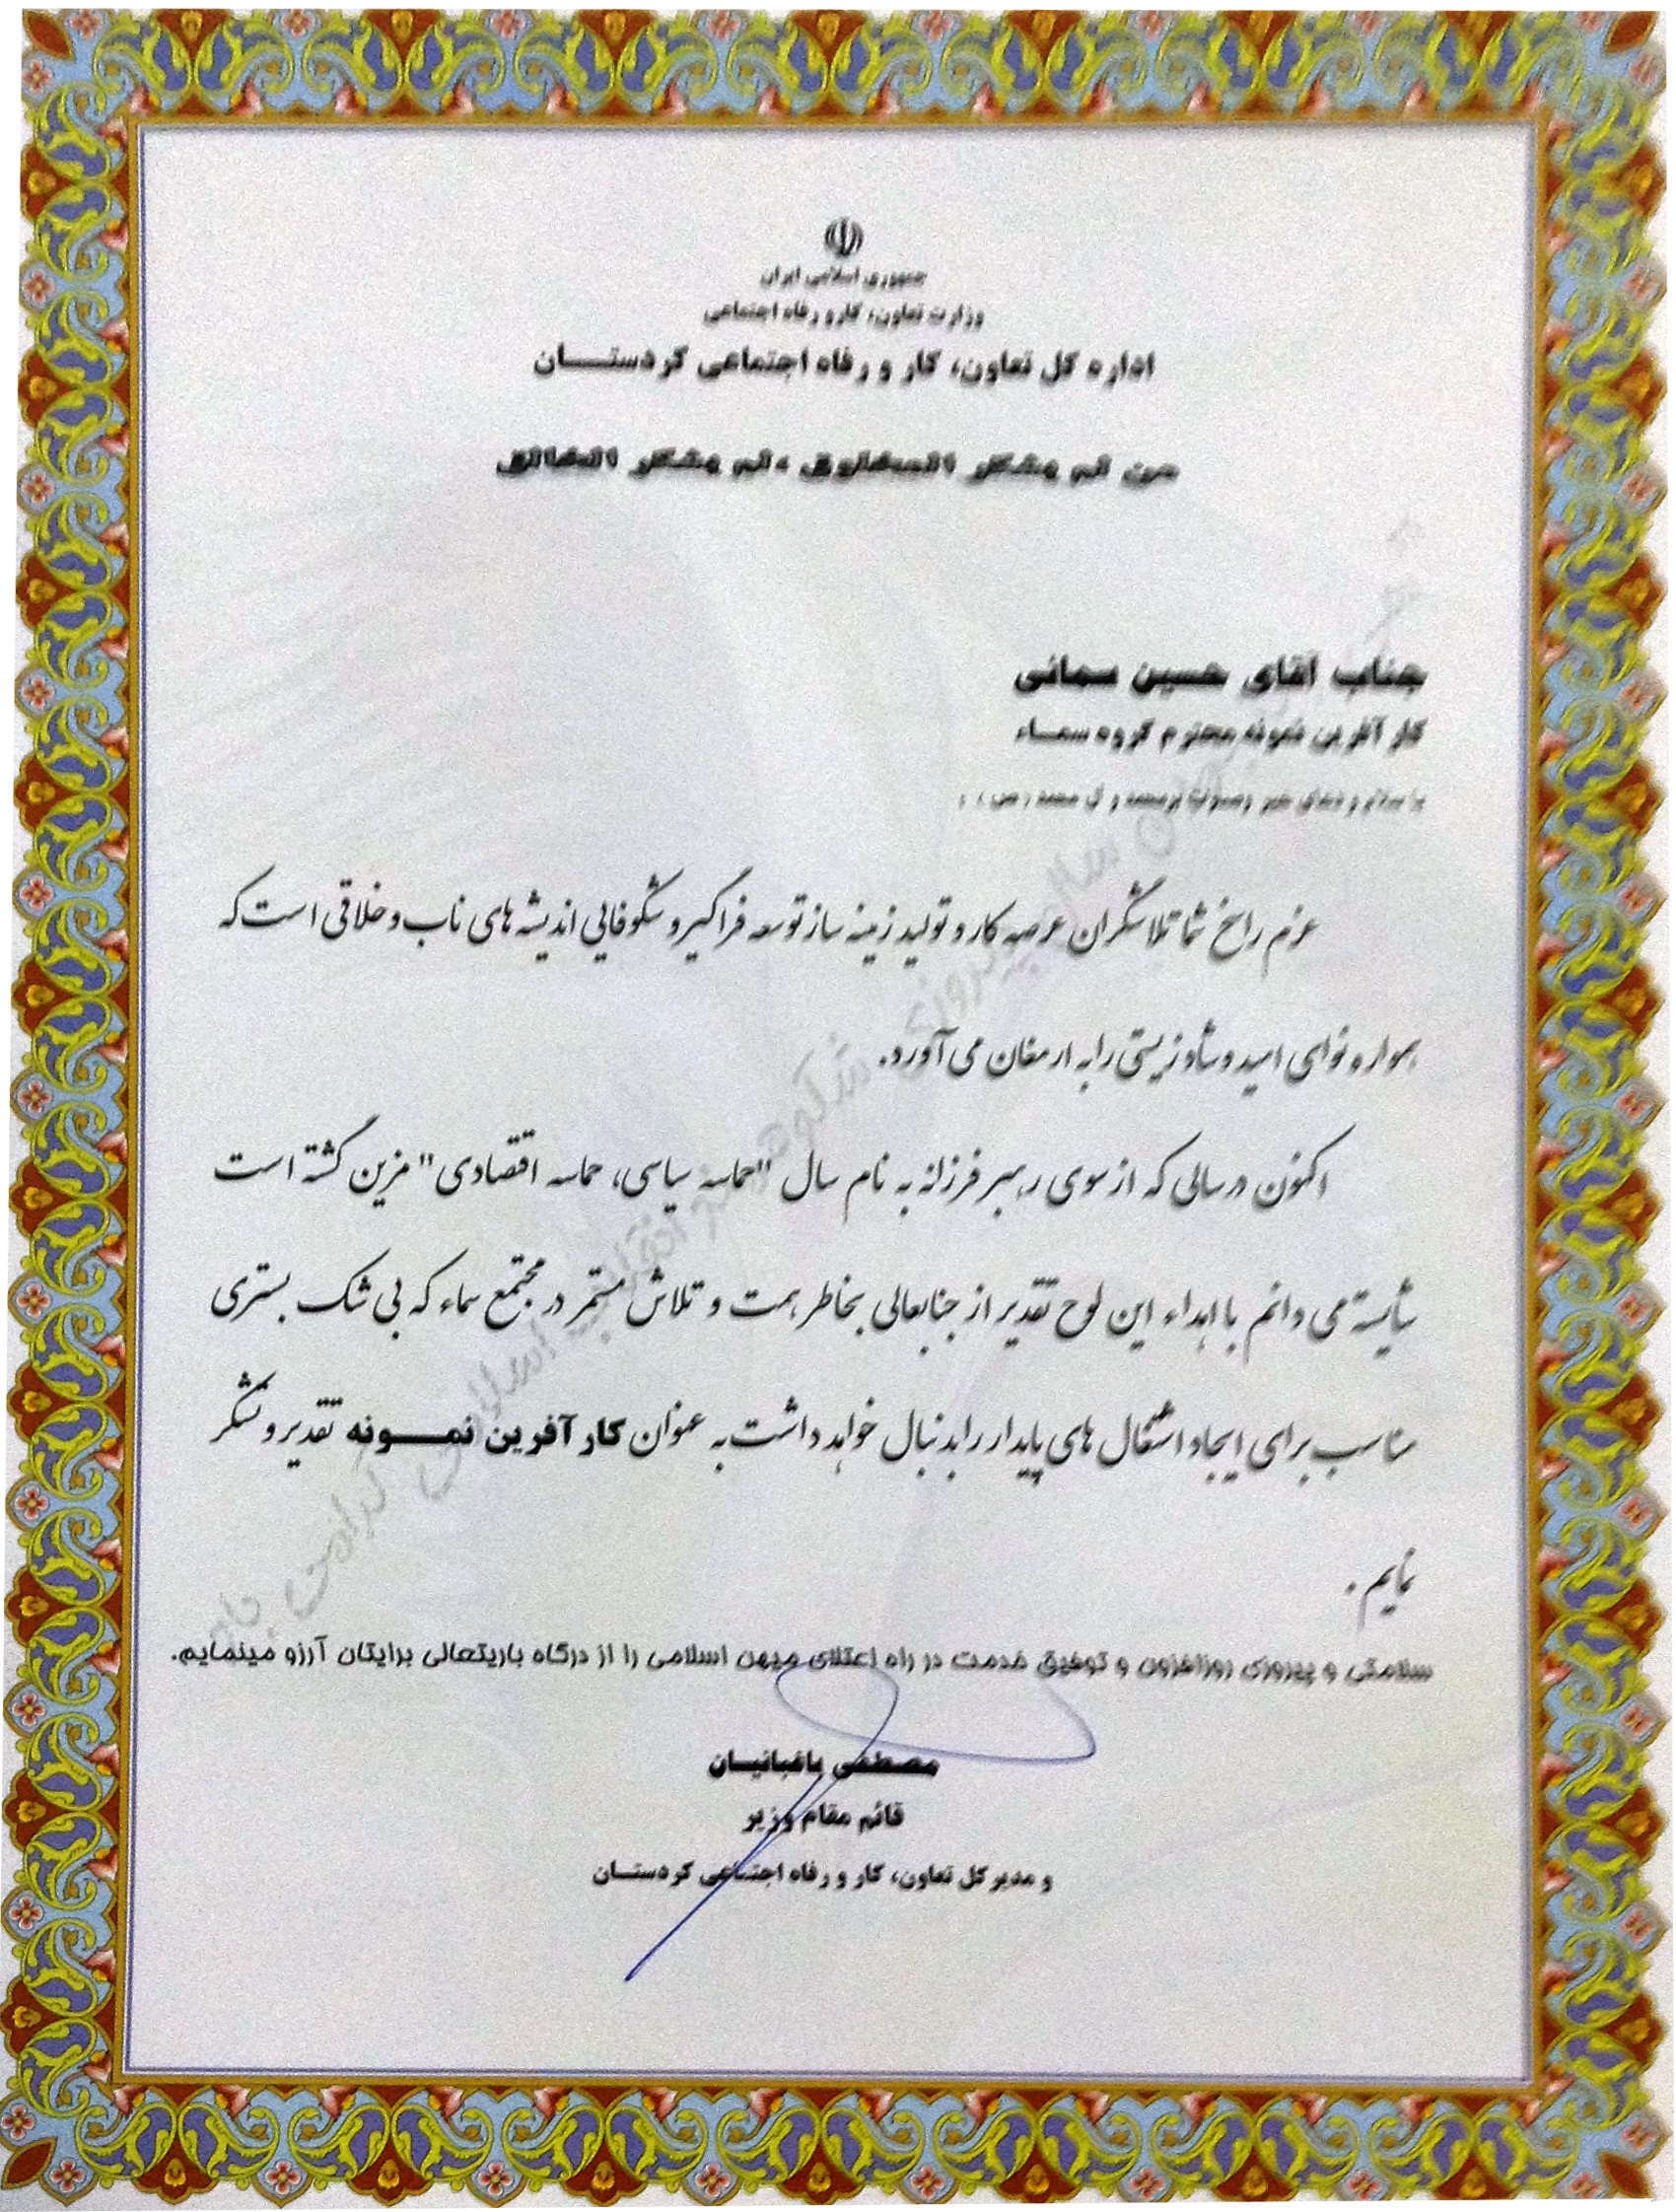 جمهوری اسلامی ایران
وزارت تعاون، کار و رفاه اجتماعی
اداره کل تعاون، کار و رفاه اجتماعی کردستـــان
من لم یشکر المخلوق ،لم یشکر الخالق
جناب آقای حسین سمائی
کار آفرین نمونه محترم گروه سمـاء
با سلام و دعای خیر و صلوات بر محمد و آل محمد (ص) ؛
عزم راسخ شما تلاشگران عرصه کار و تولید زمینه ساز توسعه فراگیر و شکوفایی اندیشه های ناب و خلاقی است که
همواره نوای امید و شاد زیستی را به ارمغان می آورد.
اکنون در سالی که از سوی رهبر فرزانه به نام سال "حماسه سیاسی، حماسه اقتصادی" مزین گشته است
شایسته می دانم با اهداء این لوح تقدیر از جنابعالی بخاطر همت و تلاش مستمر در مجتمع سماء که بی شک بستری
مناسب برای ایجاد اشتغال های پایدار را بدنبال خواهد داشت به عنوان کار آفرین نمـــونه تقدیر و تشکر
نمایم .
سلامتی و پیروزی روزافزون و توفیق خدمت در راه اعتلای میهن اسلامی را از درگاه باریتعالی برایتان آرزو مینمایم.
مصطفی باغبانیـان
قائم مقام وزیر
و مدیرکل تعاون، کار و رفاه اجتماعی کردستـان